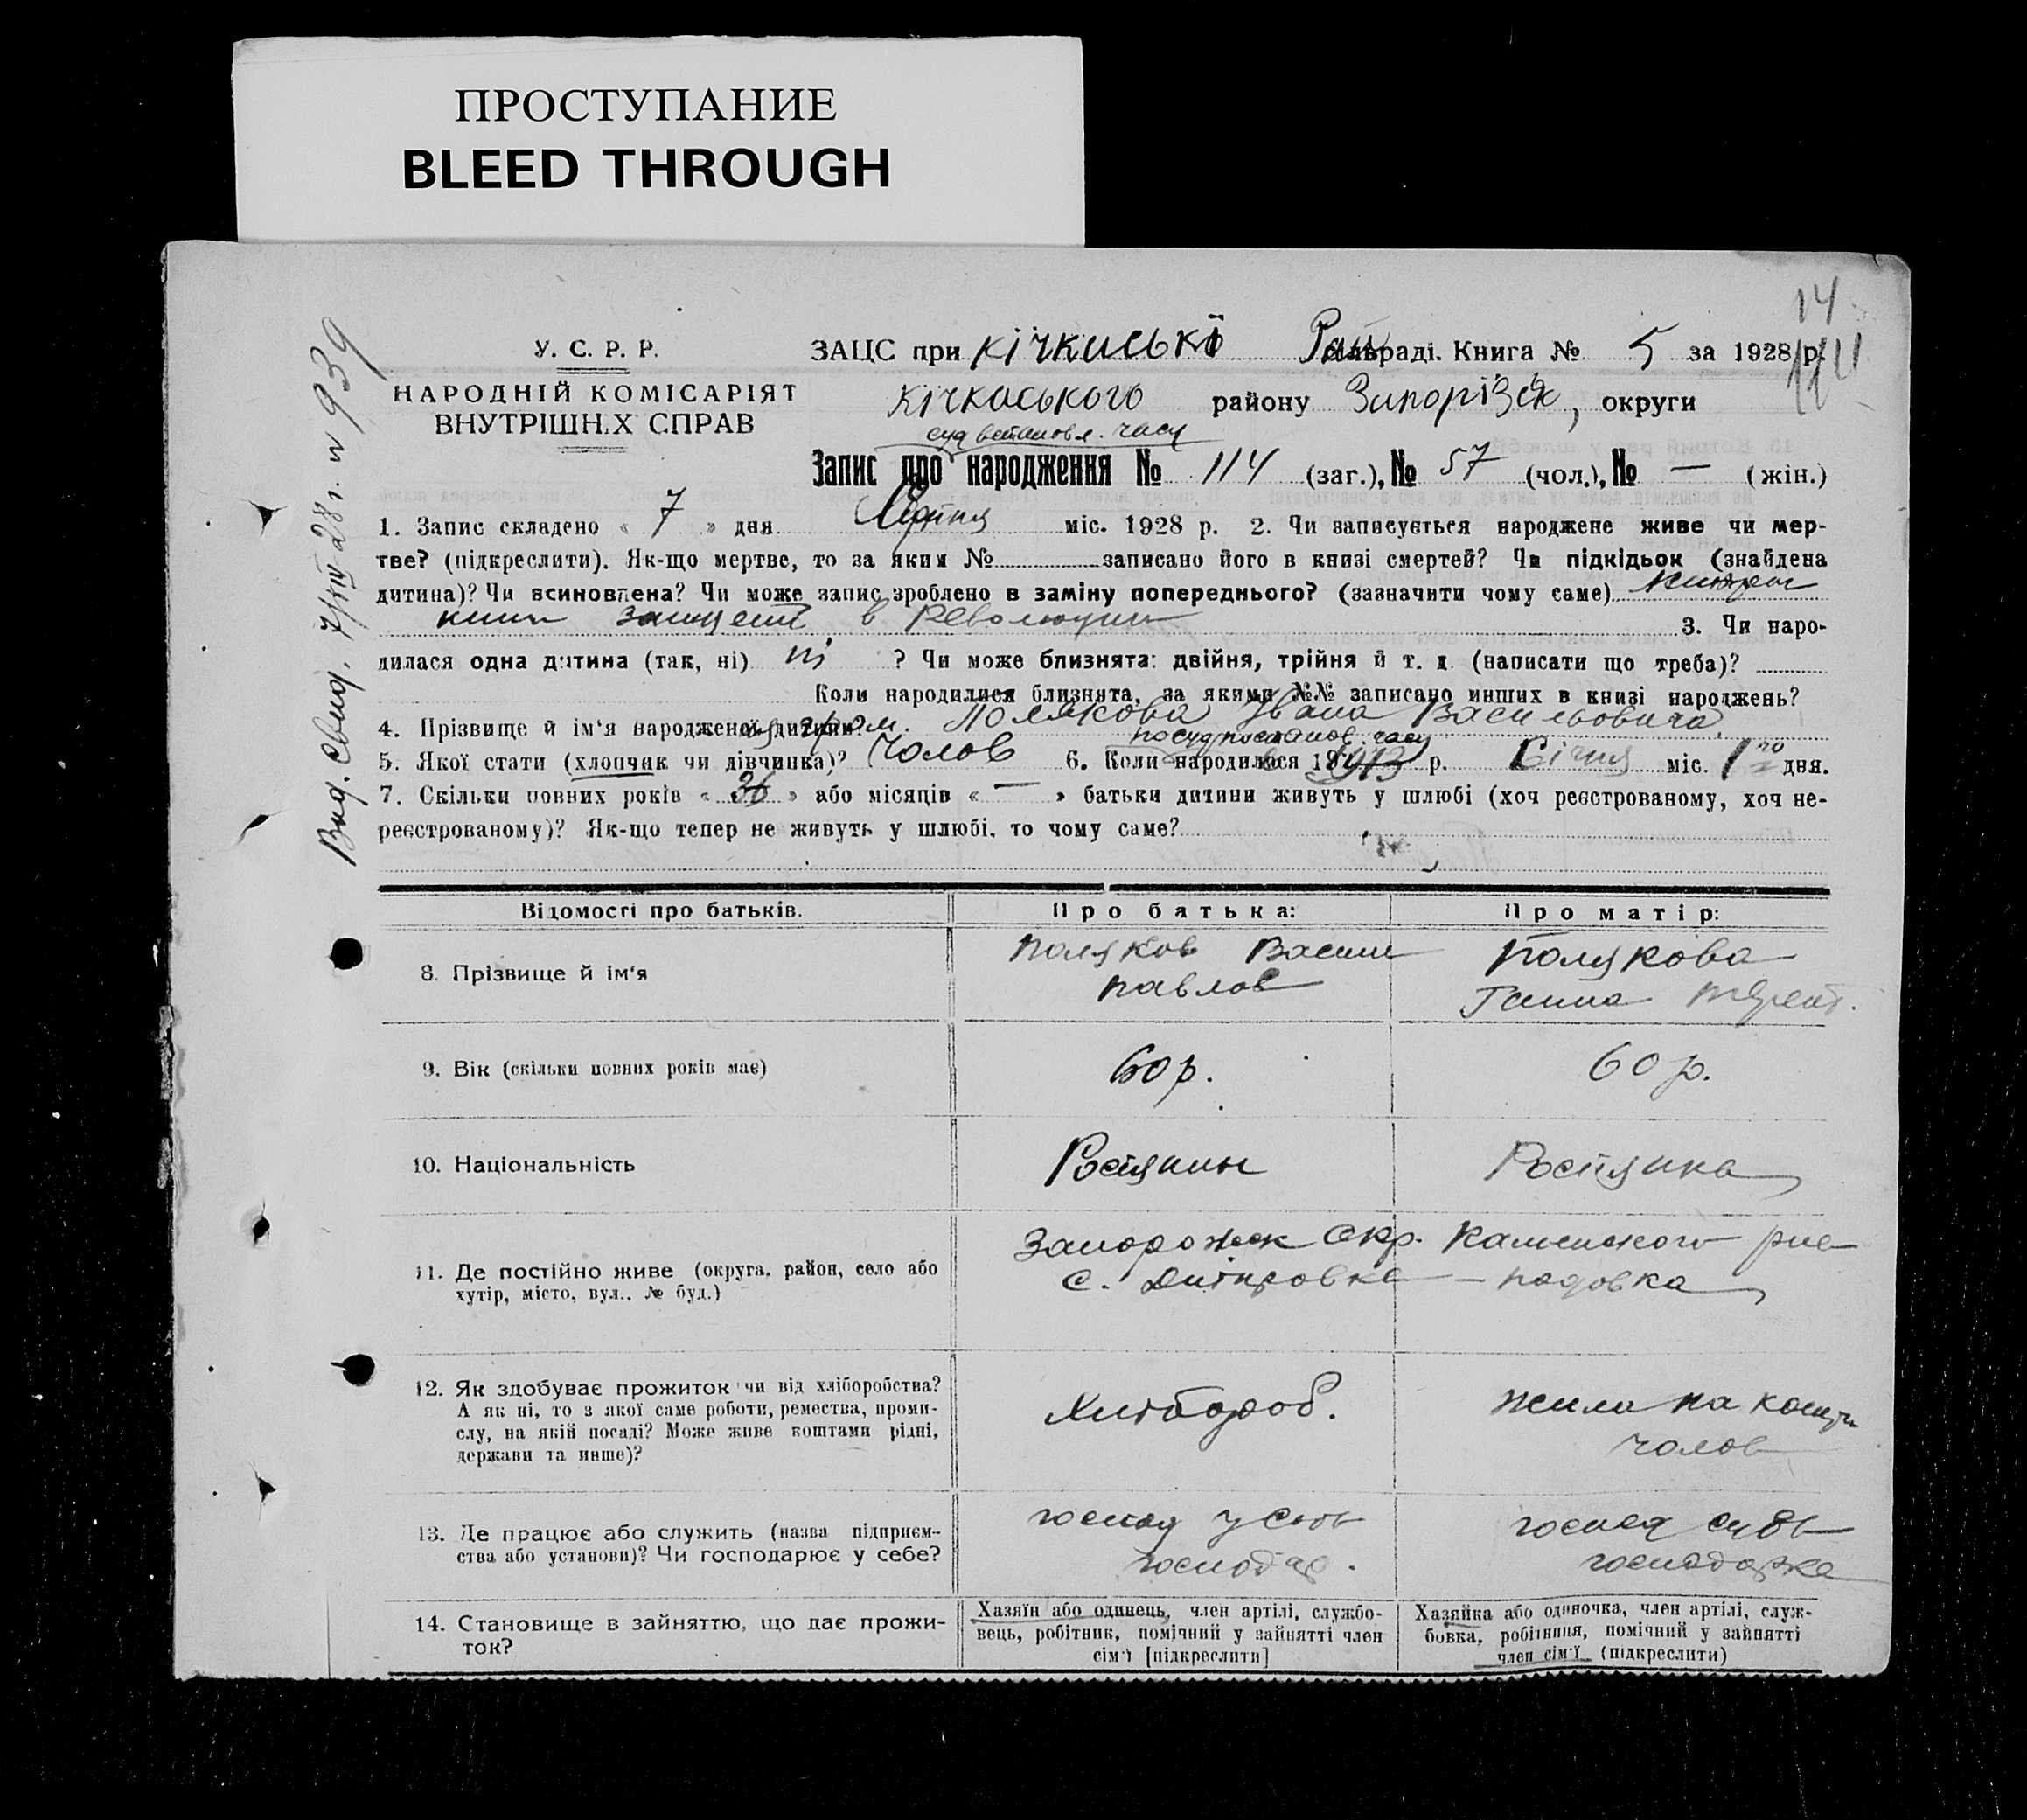 ПРОСТУПАНИЕ
BLEED THROUGH
14
У. С. Р. Р.
НАРОДНІЙ КОМІСАРІЯТ
ВНУТРІШНіХ СПРАВ
ЗАЦС при Кічкаській Рай сільраді. Книга № 5 за 1928 р.
Кічкаського району Запорізьк, округи
суд встановл. часу
Запис про народження № 114 (заг.), № 57 (чол.), № — (жін.)
1. Запис складено « 7 » дня Серпня міс. 1928 р. 2. Чи записується народжене живе чи мер-
тве? (підкреслити). Як-що мертве, то за яким № записано його в книзі смертей? Чи підкідьок (знайдена
дитина)? Чи всиновлена? Чи може запис зроблено в заміну попереднього? (зазначити чому саме)
в Революции 3. Чи наро-
дилася одна дитина (так, ні) ні ? Чи може близнята: двійня, трійня й т. д. (написати що треба)?
Коли народилися близнята, за якими №№ записано инших в книзі народжень?
4. Прізвище й ім'я народженої дитини? гром. Полякова Івана Васильовича
посуд постанов. часу
5. Якої стати (хлопчик чи дівчинка)? Чолов 6. Коли народилося 1913 р. Січня міс. 1го дня.
7. Скільки повних років « 36 » або місяців « — » батьки дитини живуть у шлюбі (хоч реєстрованому, хоч не-
реєстрованому)? Як-що тепер не живуть у шлюбі, то чому саме?
Вид. Свид. 7/VIII 28 г. № 939
Відомості про батьків.
Про батька:
Про матір:
8. Прізвище й ім'я
Поляков Васил
Павлов
Полякова
Ганна Терент.
9. Вік (скільки повних років має)
60 р.
60 р.
10. Національність
Росіянин
Росіянка
11. Де постійно живе (округа, район, село або
хутір, місто, вул., № буд.)
Запорожск Окр. Каменского рна
с. Дніпровка —
12. Як здобуває прожиток чи від хліборобства?
А як ні, то з якої саме роботи, ремества, проми-
слу, на якій посаді? Може живе коштами рідні,
держави та инше)?
Хлібороб.
жила на кошти
чолов
13. Де працює або служить (назва підприєм-
ства або установи)? Чи господарює у себе?
господ у себе
господар.
господ
господарка
14. Становище в зайняттю, що дає прожи-
ток?
Хазяїн або одинець, член артілі, службо-
вець, робітник, помічний у зайнятті член
сім'ї [підкреслити]
Хазяйка або одиночка, член артілі, служ-
бовка, робітниця, помічний у зайнятті
член сім'ї (підкреслити)